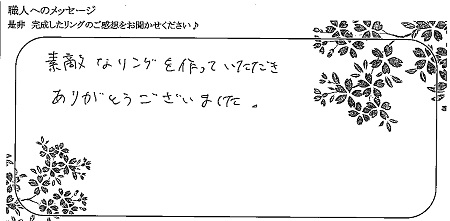 職人へのメッセージ
是非 完成したリングのご感想をお聞かせください♪
素敵なリングを作っていただき
ありがとうございました。